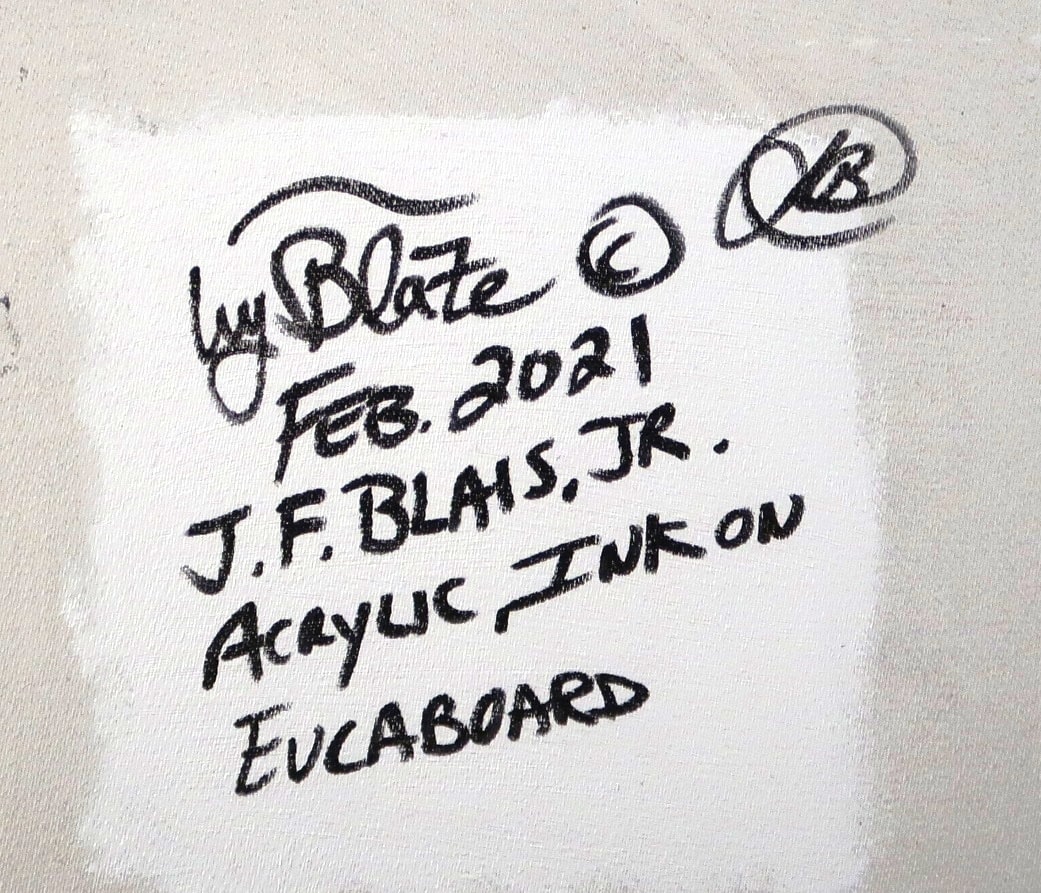 Blaze ©
FEB. 2021
J.F. BLAIS, JR.
ACRYLIC, INK ON
EUCABOARD